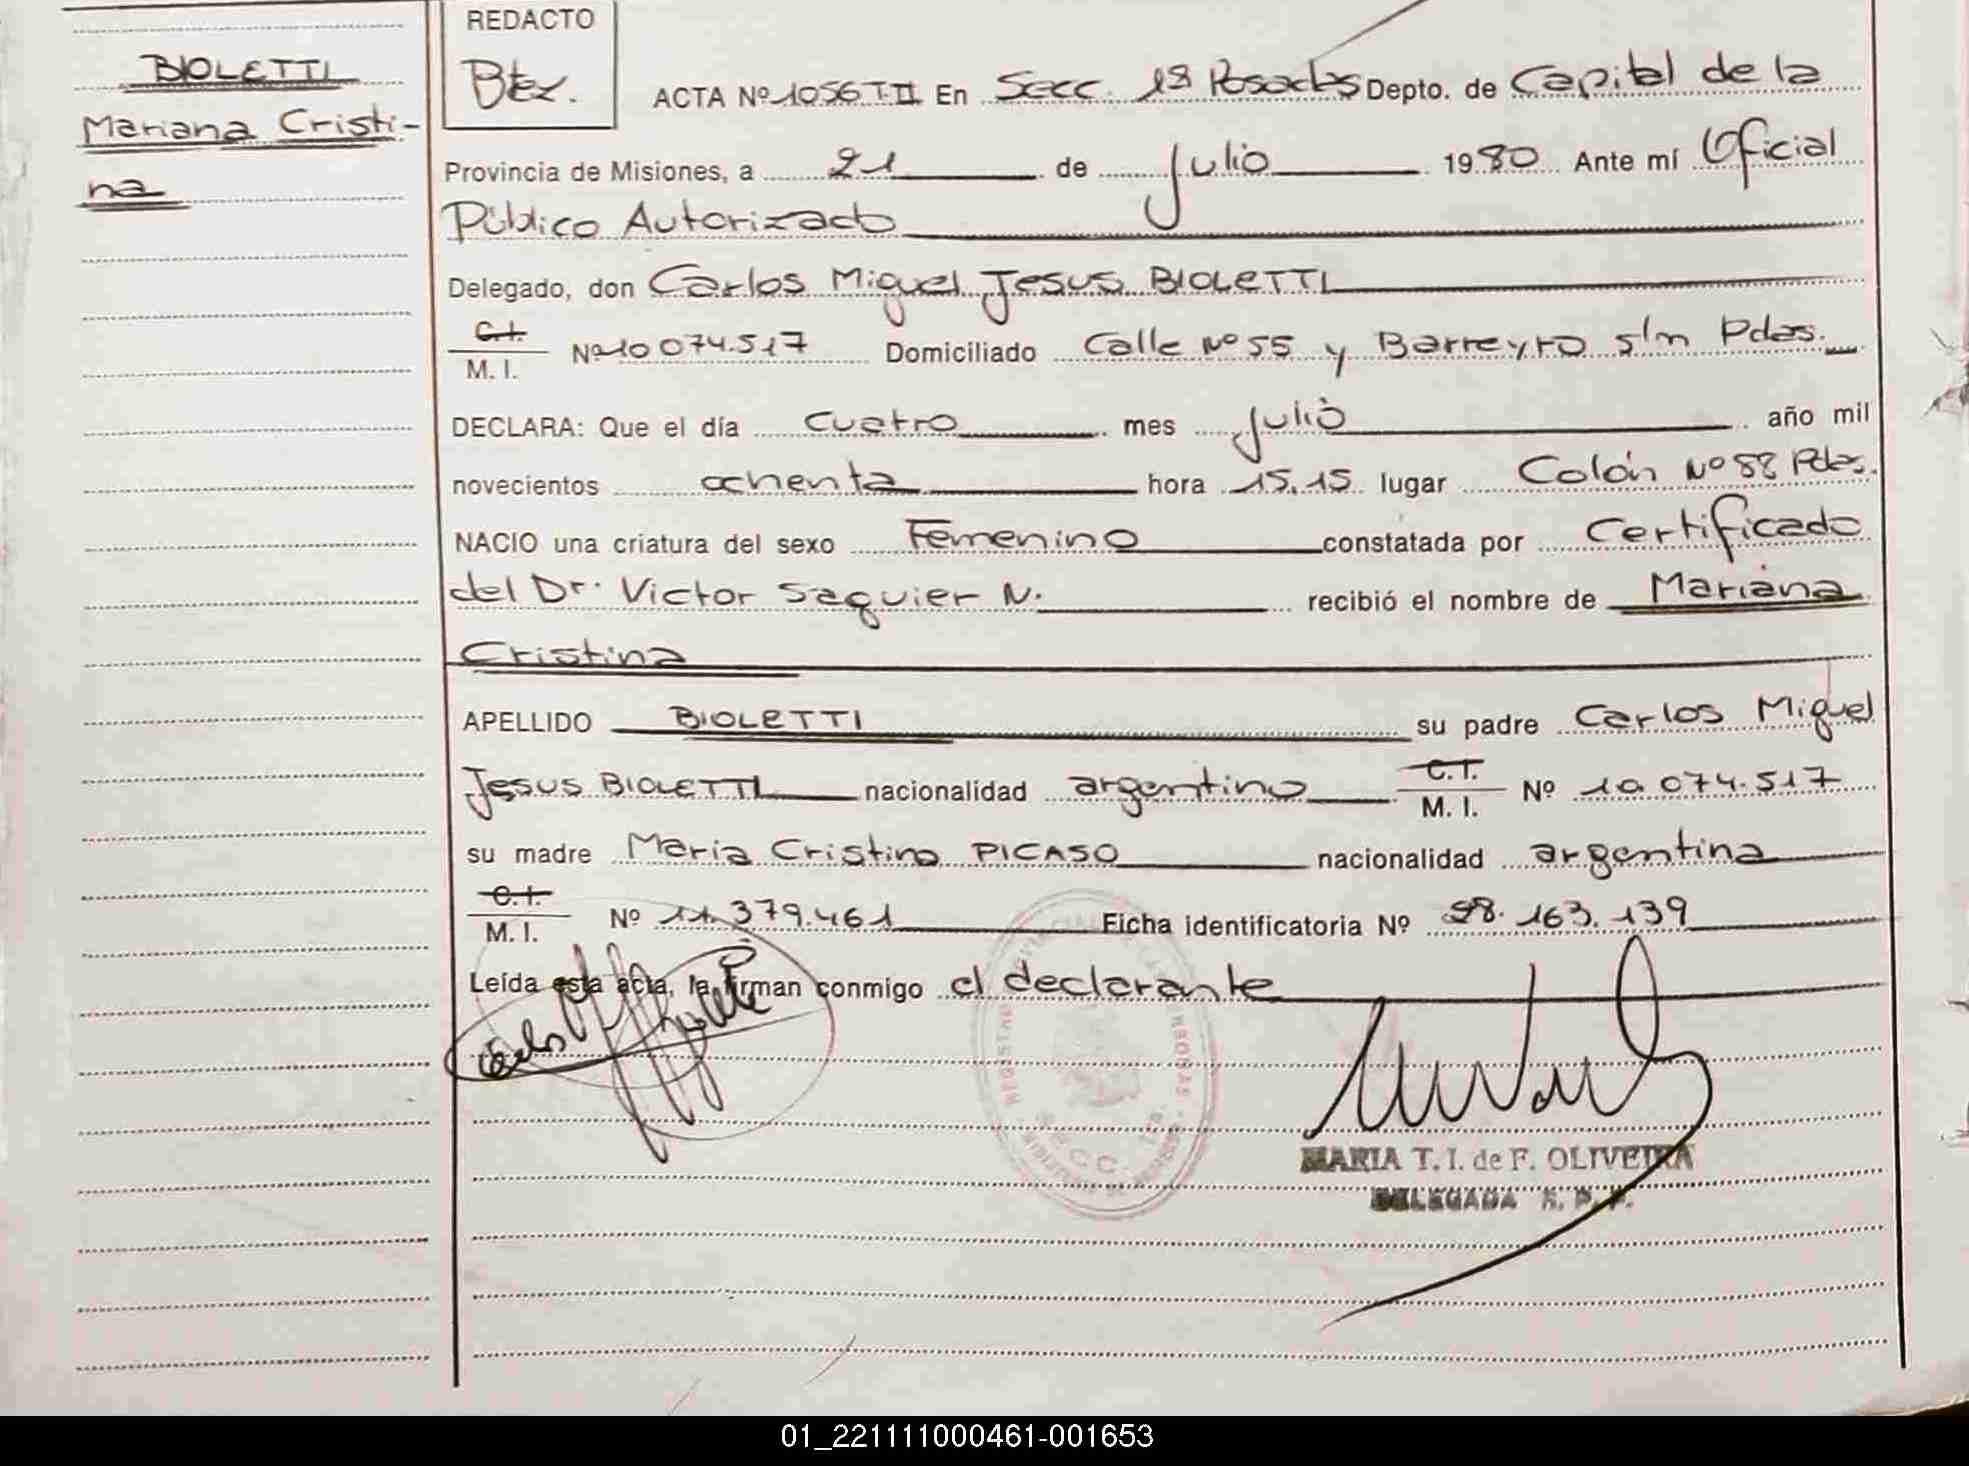 BIOLETTI
Mariana Cristi-
na
REDACTO
Btez.
ACTA Nº 1056 T-II En Secc. 1ª Posadas Depto. de Capital de la
Provincia de Misiones, a 21 de Julio 1980 Ante mí Oficial
Público Autorizado
Delegado, don Carlos Miguel Jesus BIOLETTI
C.I.
M. I. Nº 10 074.517 Domiciliado Calle Nº 55 y Barreyro s/n Pdas.
DECLARA: Que el día cuatro mes Julio año mil
novecientos ochenta hora 15.15 lugar Colón Nº 58 Pdas.
NACIO una criatura del sexo Femenino constatada por Certificado
del Dr. Victor Saguier N. recibió el nombre de Mariana
Cristina
APELLIDO BIOLETTI su padre Carlos Miguel
Jesus BIOLETTI nacionalidad argentino C.I. M. I. Nº 10.074.517
su madre Maria Cristina PICASO nacionalidad argentina
C.I.
M. I. Nº 11.379.461 Ficha identificatoria Nº 28.163.139
Leída esta acta, la firman conmigo el declarante
MARIA T. I. de F. OLIVEIRA
DELEGADA R. P. P.
01_221111000461-001653